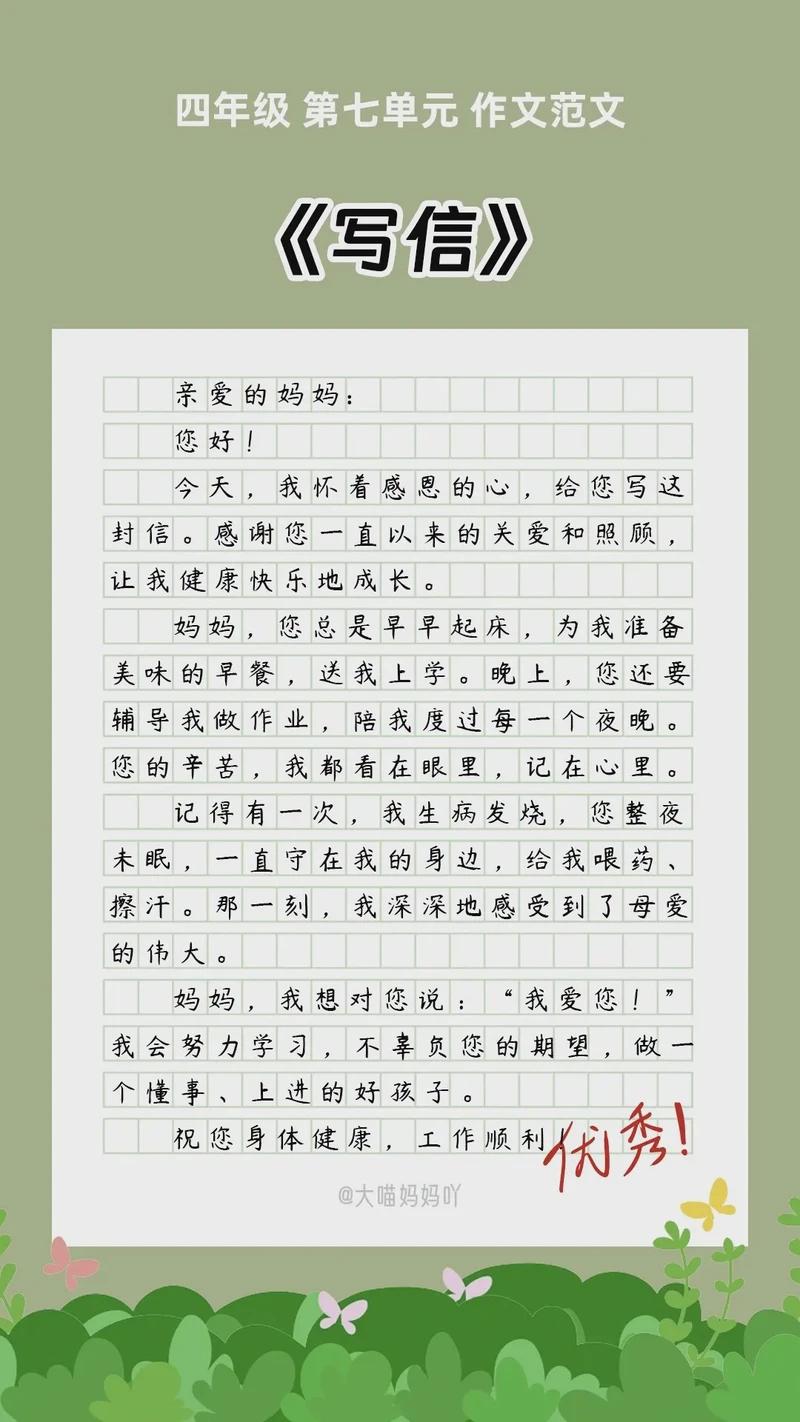 四年级 第七单元 作文范文
《写信》
亲爱的妈妈：
您好！
今天，我怀着感恩的心，给您写这
封信。感谢您一直以来的关爱和照顾，
让我健康快乐地成长。
妈妈，您总是早早起床，为我准备
美味的早餐，送我上学。晚上，您还要
辅导我做作业，陪我度过每一个夜晚。
您的辛苦，我都看在眼里，记在心里。
记得有一次，我生病发烧，您整夜
未眠，一直守在我的身边，给我喂药、
擦汗。那一刻，我深深地感受到了母爱
的伟大。
妈妈，我想对您说：“我爱您！”
我会努力学习，不辜负您的期望，做一
个懂事、上进的好孩子。
祝您身体健康，工作顺利！
优秀！
@大喵妈妈吖